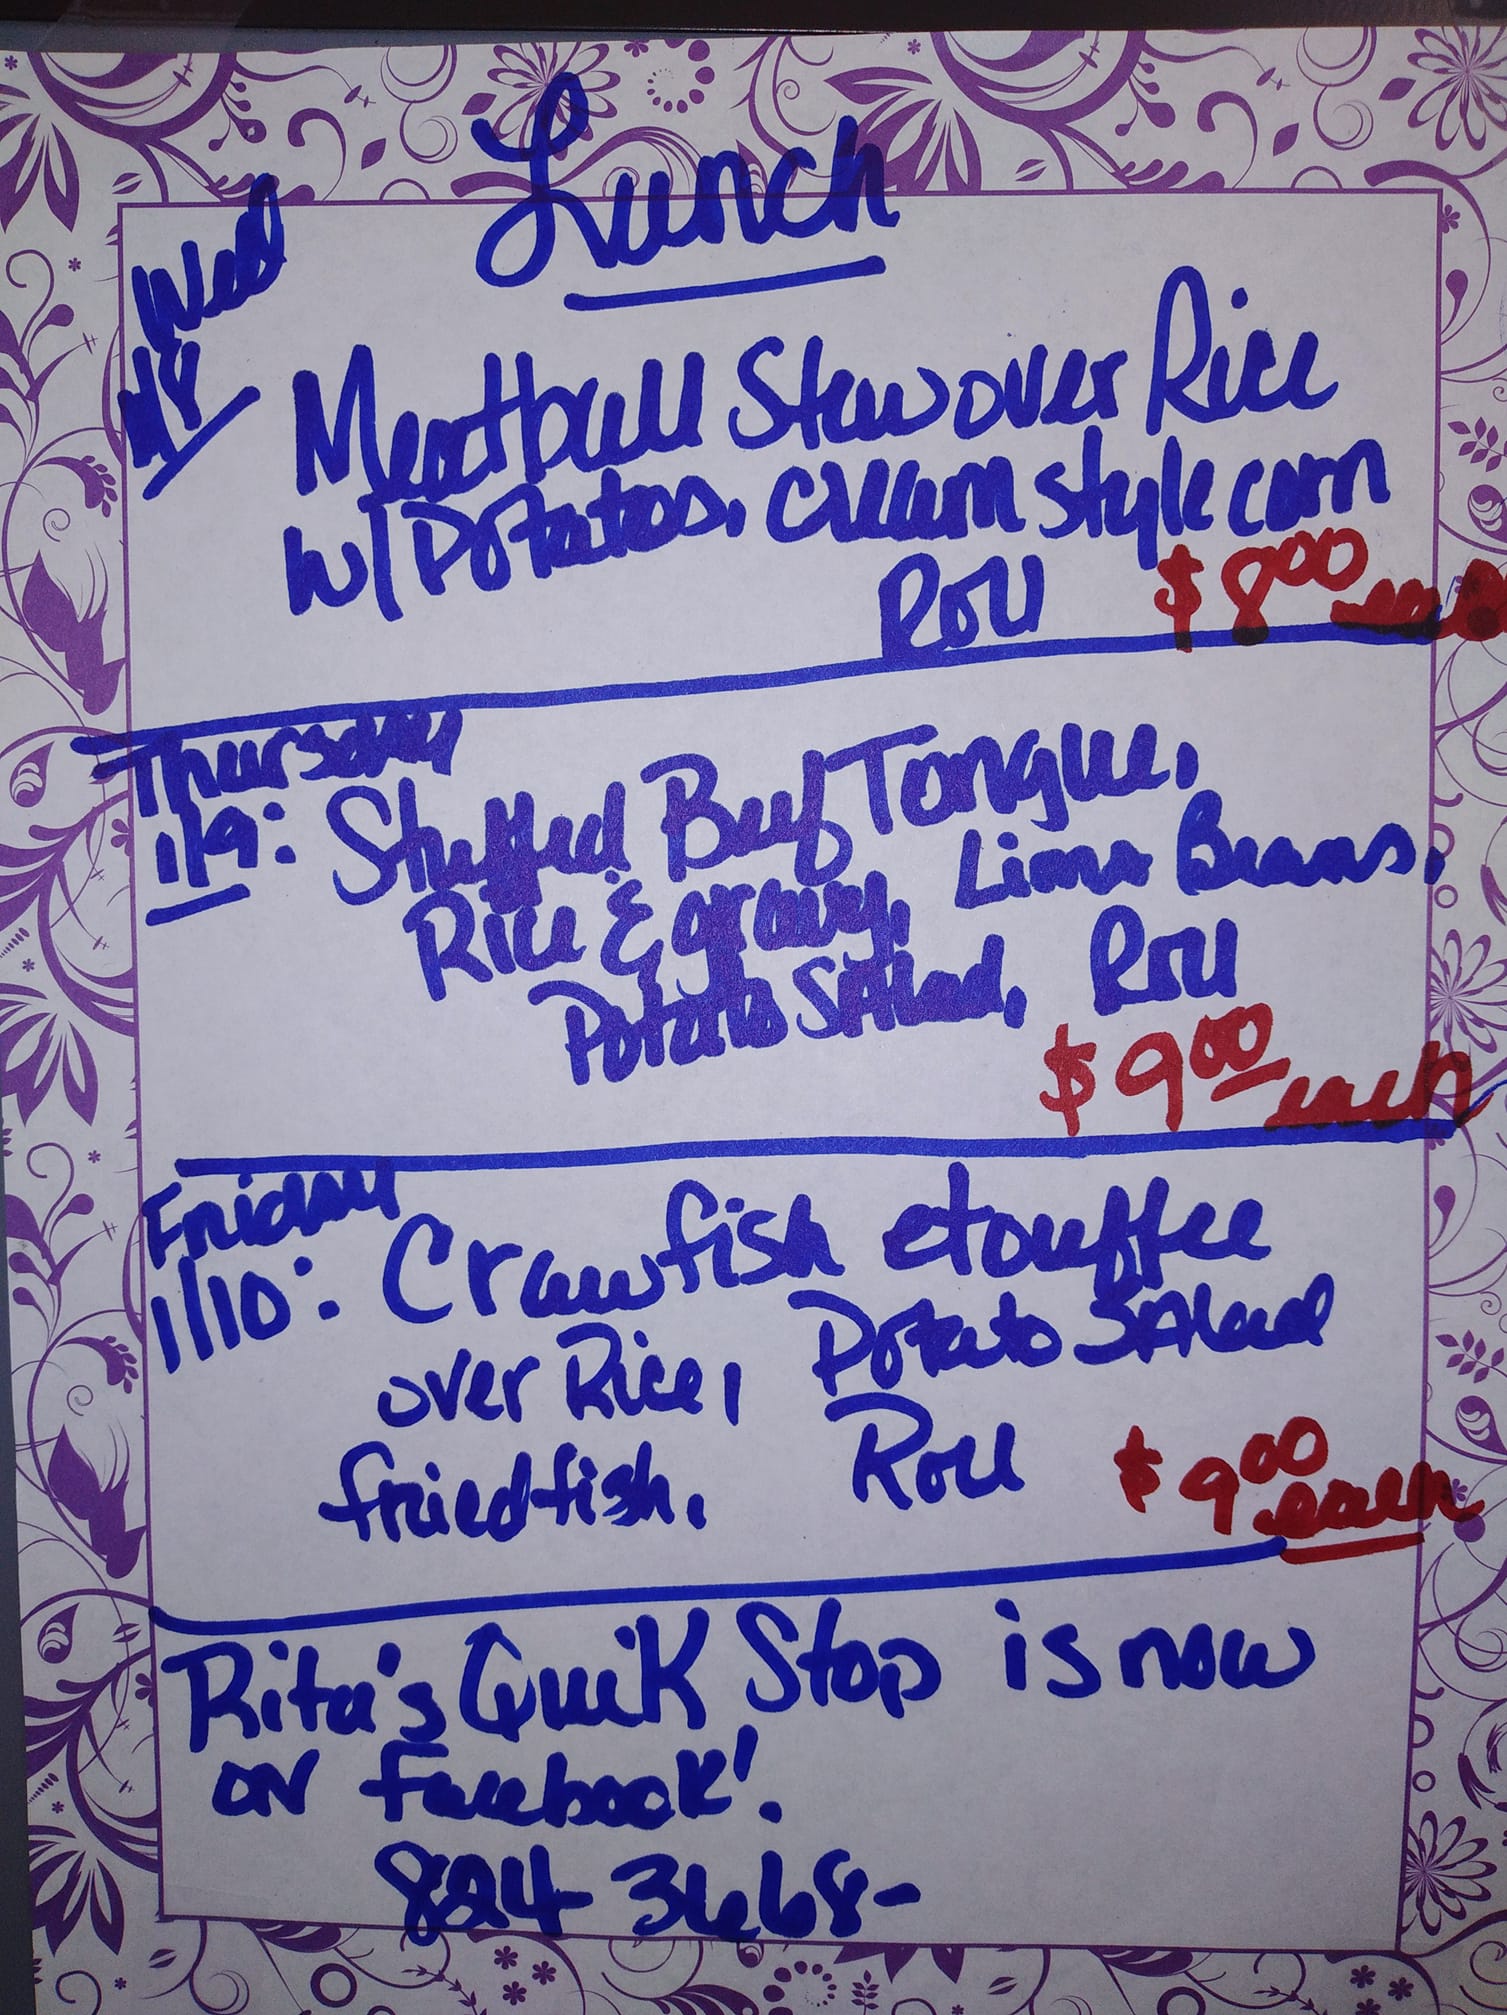 Lunch
Wed
1/8
Meatball Stew over Rice
w/ Potatoes, cream style corn
Roll $8.00 each
Thursday
1/9: Stuffed Beef Tongue,
Rice & gravy, Lima Beans,
Potato Salad, Roll
$9.00 each
Friday
1/10: Crawfish etouffee
over Rice, Potato Salad
fried fish, Roll $9.00 each
Rita's Quik Stop is now
on Facebook!
824-3668-